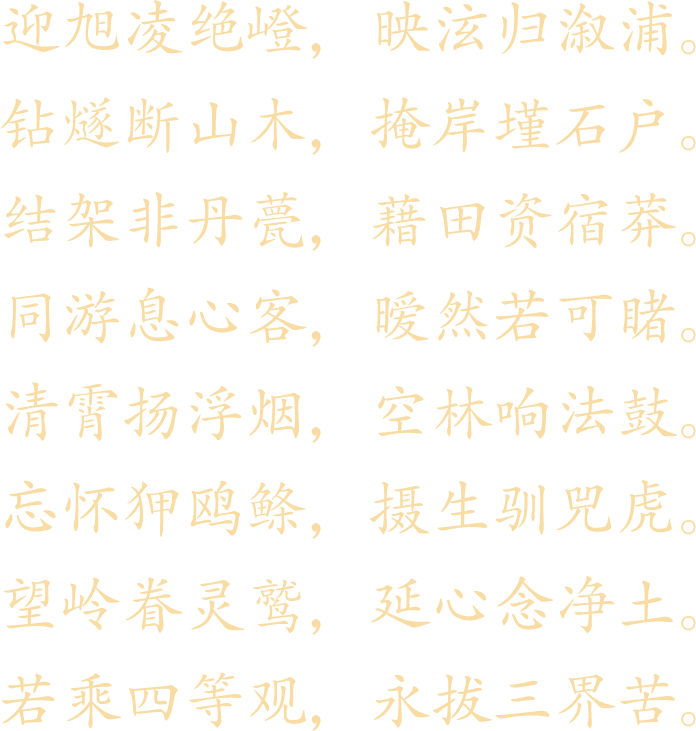 迎旭凌绝嶝，映泫归溆浦。
钻燧断山木，掩岸墐石户。
结架非丹甍，藉田资宿莽。
同游息心客，暧然若可睹。
清霄扬浮烟，空林响法鼓。
忘怀狎鸥鲦，摄生驯兕虎。
望岭眷灵鹫，延心念净土。
若乘四等观，永拔三界苦。